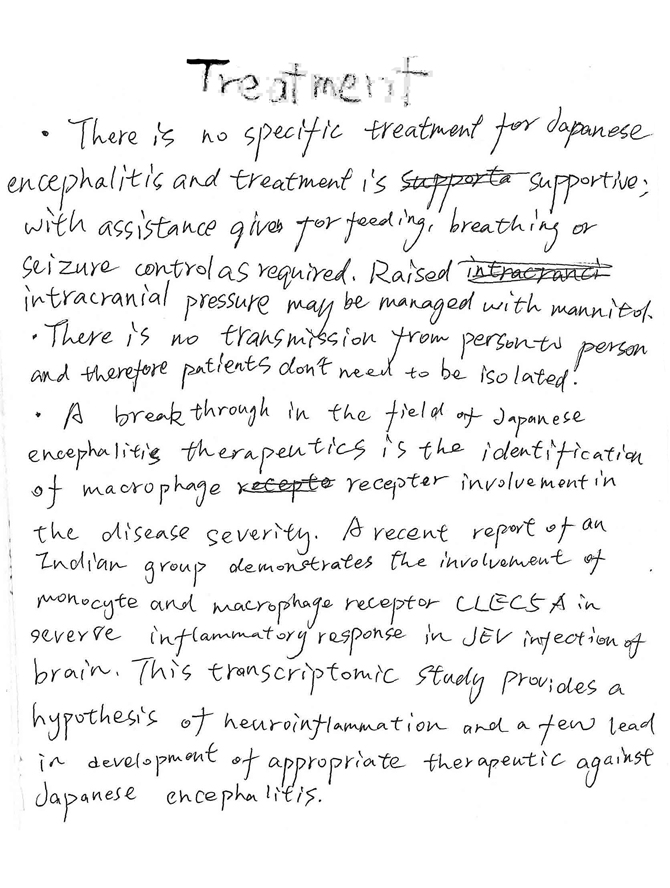 Treatment
• There is no specific treatment for Japanese
encephalitis and treatment is supporta supportive;
with assistance given for feeding, breathing or
seizure control as required. Raised intracranci
intracranial pressure may be managed with mannitol.
• There is no transmission from person to person
and therefore patients don't need to be isolated.
• A break through in the field of Japanese
encephalitis therapeutics is the identification
of macrophage recepto recepter involvement in
the disease severity. A recent report of an
Indian group demonstrates the involvement of
monocyte and macrophage receptor CLEC5A in
severre inflammatory response in JEV infection of
brain. This transcriptomic study provides a
hypothesis of neuroinflammation and a few lead
in development of appropriate therapeutic against
Japanese encephalitis.